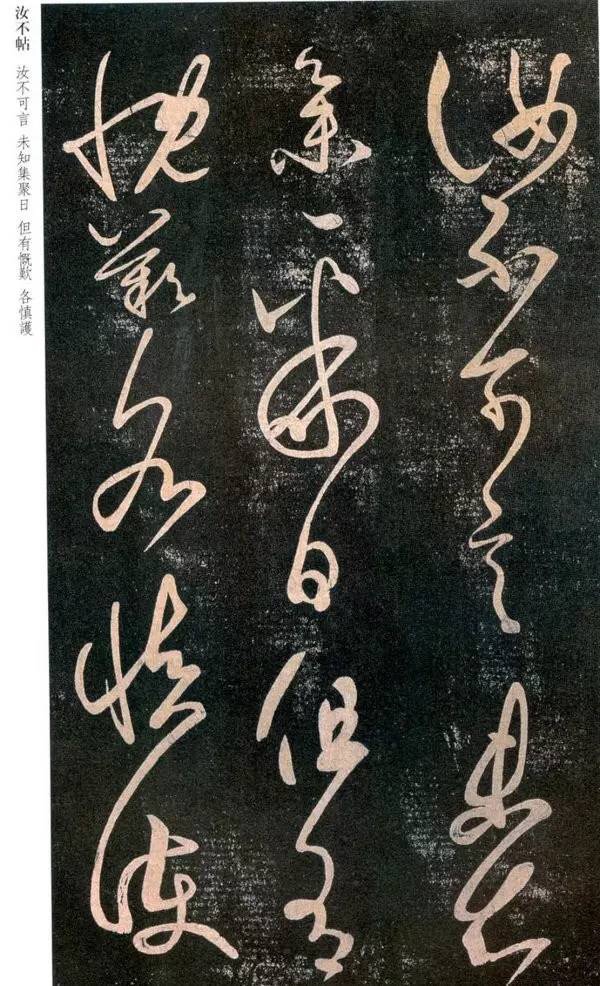 汝不可言未知
集聚日但有
慨歎各慎護
汝不帖 汝不可言 未知集聚日 但有慨歎 各慎護